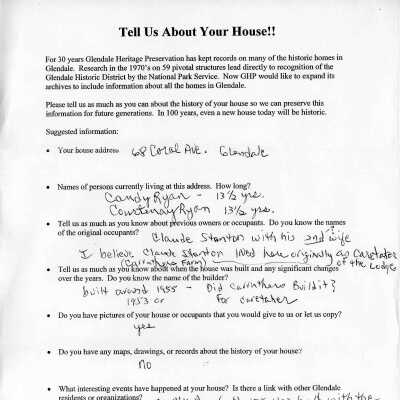 Tell Us About Your House!!
For 30 years Glendale Heritage Preservation has kept records on many of the historic homes in
Glendale. Research in the 1970's on 59 pivotal structures lead directly to recognition of the
Glendale Historic District by the National Park Service. Now GHP would like to expand its
archives to include information about all the homes in Glendale.
Please tell us as much as you can about the history of your house so we can preserve this
information for future generations. In 100 years, even a new house today will be historic.
Suggested information:
• Your house address 68 Coral Ave. Glendale
• Names of persons currently living at this address. How long?
Candy Ryan - 13½ yrs.
Courtenay Ryan 13½ yrs.
• Tell us as much as you know about previous owners or occupants. Do you know the names
of the original occupants? Claude Stanton with his 2nd wife
I believe Claude Stanton lived here originally as caretaker
(Carruthers Farm) of the Lodge
• Tell us as much as you know about when the house was built and any significant changes
over the years. Do you know the name of the builder?
built around 1955 - Did Carruthers Build it?
1953 or For caretaker
• Do you have pictures of your house or occupants that you would give to us or let us copy?
yes
• Do you have any maps, drawings, or records about the history of your house?
no
• What interesting events have happened at your house? Is there a link with other Glendale
residents or organizations?